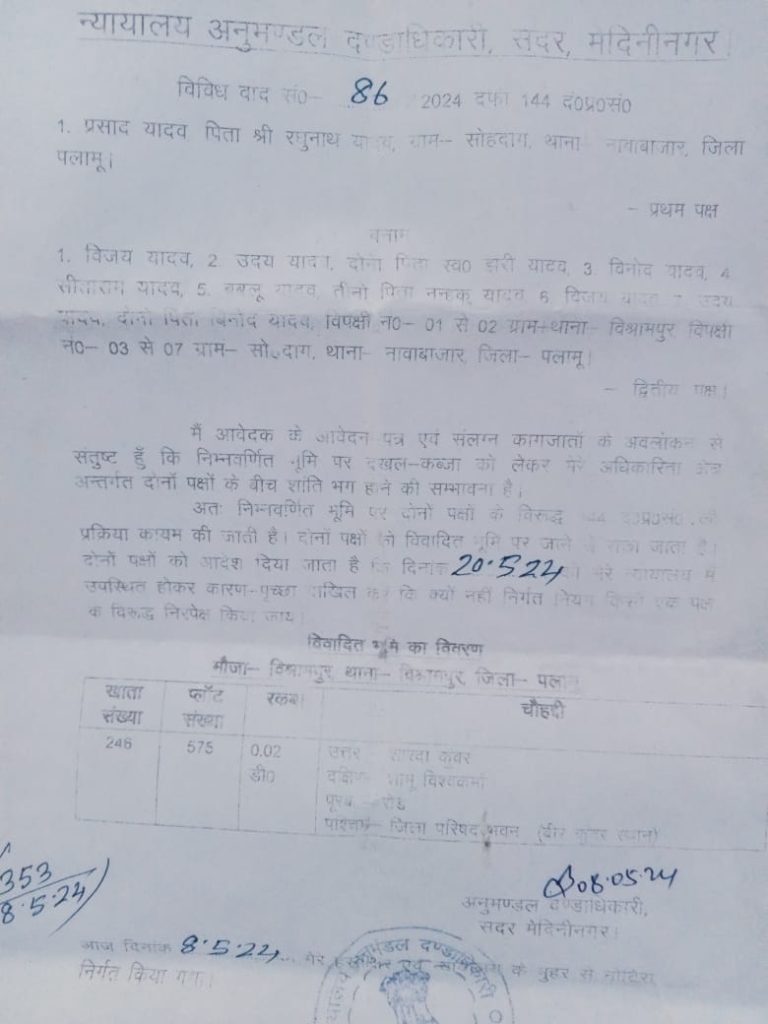 न्यायालय अनुमण्डल दण्डाधिकारी, सदर, मेदिनीनगर।
विविध वाद सं०- 86 2024 दफा 144 द०प्र०सं०
1. प्रसाद यादव पिता श्री रघुनाथ यादव, ग्राम- सोहदाग, थाना- नावाबाजार, जिला
पलामू।
- प्रथम पक्ष
बनाम
1. विजय यादव, 2. उदय यादव, दोनो पिता स्व० यादव, 3. विनोद यादव, 4.
सीताराम यादव, 5. बबलू यादव, तीनो पिता नन्हक यादव 6. विजय यादव 7. उदय
यादव, दोनो पिता बिनोद यादव, विपक्षी नं०- 01 से 02 ग्राम+थाना- विश्रामपुर विपक्षी
नं०- 03 से 07 ग्राम- सोहदाग, थाना- नावाबाजार, जिला- पलामू।
- द्वितीय पक्ष।
मैं आवेदक के आवेदन पत्र एवं संलग्न कागजातों के अवलोकन से
संतुष्ट हूँ कि निम्नवर्णित भूमि पर दखल-कब्जा को लेकर मेरे अधिकारिता क्षेत्र
अन्तर्गत दोनों पक्षों के बीच शांति भंग होने की सम्भावना है।
अतः निम्नवर्णित भूमि पर दोनो पक्षों के विरूद्ध 144 द०प्र०सं० की
प्रक्रिया कायम की जाती है। दोनों पक्षों को विवादित भूमि पर जाने से रोका जाता है।
दोनों पक्षों को आदेश दिया जाता है कि दिनांक 20.5.24 को मेरे न्यायालय में
उपस्थित होकर कारण-पृच्छा दाखिल करें कि क्यों नहीं निर्गत किसी एक पक्ष
के विरूद्ध निरपेक्ष किया जाय।
विवादित भूमि का विवरण
मौजा- विश्रामपुर, थाना- विश्रामपुर, जिला- पलामू
खाता संख्या प्लॉट संख्या रकबा चौहदी
246 575 0.02 डी० उत्तर - कुंवर
दक्षिण- विश्वकर्मा
पूरब - रोड
पश्चिम- जिला परिषद भवन (वीर कुंवर स्थान)
353
8.5.24
08.05.24
अनुमण्डल दण्डाधिकारी,
सदर मेदिनीनगर।
आज दिनांक 8.5.24... मेरे हस्ताक्षर एवं न्यायालय के मुहर से नोटिस
निर्गत किया गया।
अनुमंडल दण्डाधिकारी